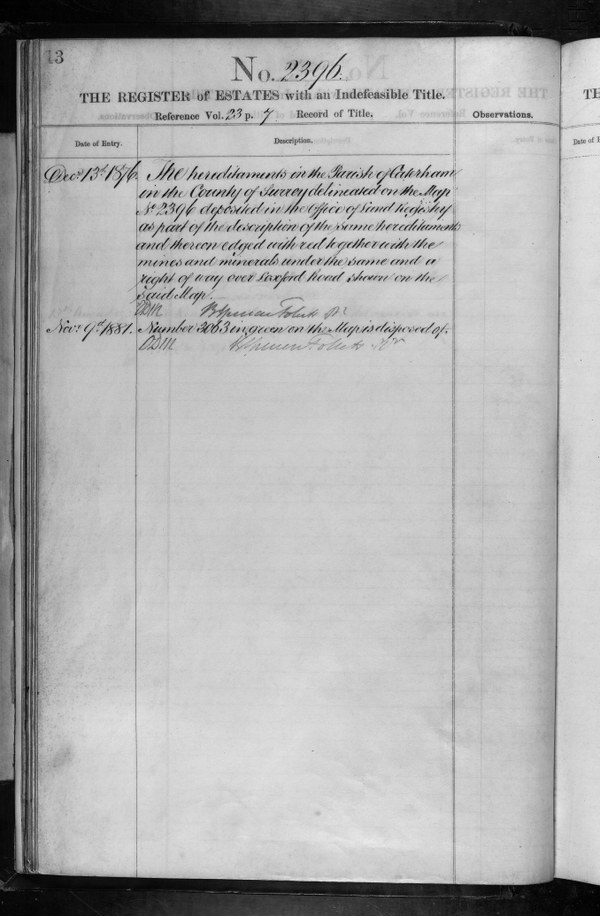 13
No. 2396.
THE REGISTER of ESTATES with an Indefeasible Title.
Reference Vol. 23 p. 7 Record of Title.
Observations.
Date of Entry.
Description.
Decr. 13th. 1876. The hereditaments in the Parish of Caterham
in the County of Surrey delineated on the Map
No 2396 deposited in the Office of Land Registry
as part of the description of the same hereditaments
and thereon edged with red together with the
mines and minerals under the same and a
right of way over Loxford Road shown on the
said Map.
Follett
Novr. 9th. 1881. Number 3063 in green on the Map is disposed of.
Follett
TH
Date of E